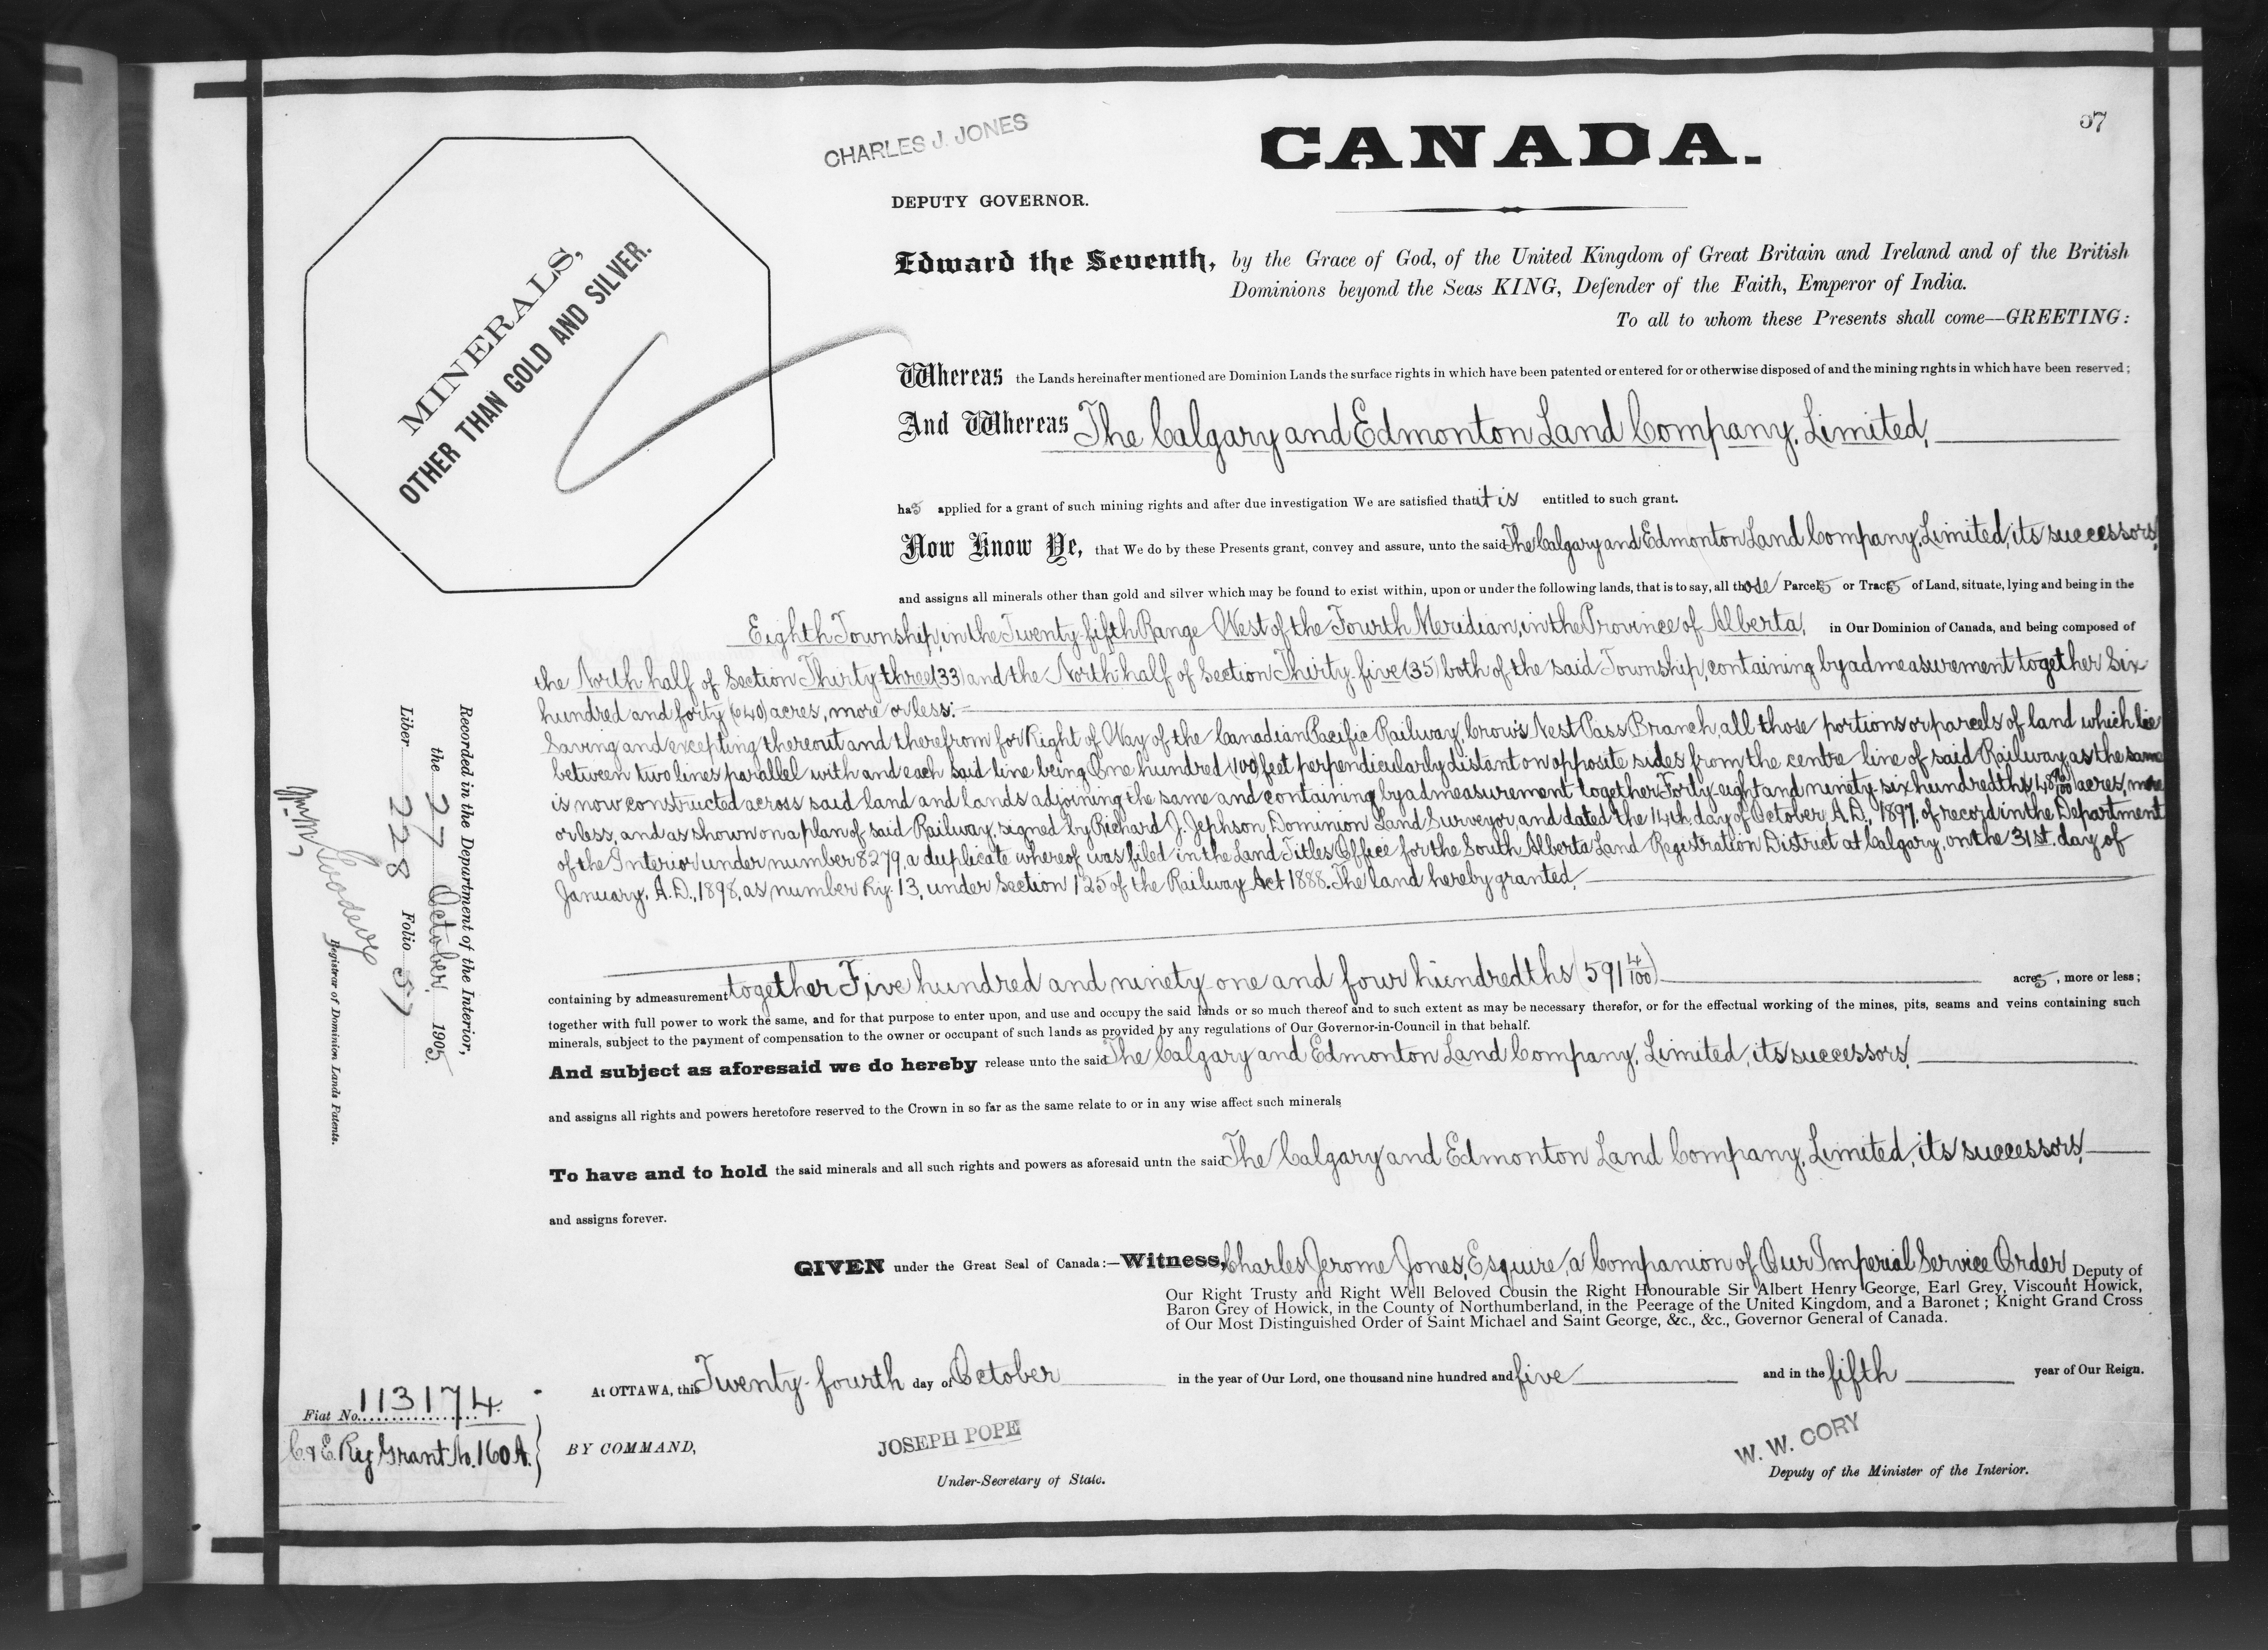 57
CHARLES J. JONES
CANADA.
DEPUTY GOVERNOR.
MINERALS,
OTHER THAN GOLD AND SILVER.
Edward the Seventh, by the Grace of God, of the United Kingdom of Great Britain and Ireland and of the British
Dominions beyond the Seas KING, Defender of the Faith, Emperor of India.
To all to whom these Presents shall come—GREETING:
Whereas the Lands hereinafter mentioned are Dominion Lands the surface rights in which have been patented or entered for or otherwise disposed of and the mining rights in which have been reserved;
And Whereas The Calgary and Edmonton Land Company, Limited,
has applied for a grant of such mining rights and after due investigation We are satisfied that it is entitled to such grant.
Now Know Ye, that We do by these Presents grant, convey and assure, unto the said The Calgary and Edmonton Land Company, Limited, its successors,
and assigns all minerals other than gold and silver which may be found to exist within, upon or under the following lands, that is to say, all those Parcels or Tracts of Land, situate, lying and being in the
Eighth Township, in the Twenty-fifth Range West of the Fourth Meridian, in the Province of Alberta, in Our Dominion of Canada, and being composed of
the North half of Section Thirty three (33) and the North half of Section Thirty-five (35) both of the said Township, containing by admeasurement together Six
hundred and forty (640) acres, more or less:
Saving and excepting thereout and therefrom for Right of Way of the Canadian Pacific Railway, Crow's Nest Pass Branch, all those portions or parcels of land which lie
between two lines parallel with and each said line being One hundred (100) feet perpendicularly distant on opposite sides from the centre line of said Railway, as the same
is now constructed across said land and lands adjoining the same and containing by admeasurement together Forty-eight and ninety-six hundredths (48 96/100) acres, more
or less, and as shown on a plan of said Railway, signed by Richard J. Jephson, Dominion Land Surveyor, and dated the 14th. day of October, A.D., 1897, of record in the Department
of the Interior under number 8279, a duplicate whereof was filed in the Land Titles Office for the South Alberta Land Registration District at Calgary, on the 31st. day of
January, A.D., 1898, as number Ry. 13, under Section 125 of the Railway Act 1888. The land hereby granted
containing by admeasurement together Five hundred and ninety-one and four hundredths (591 4/100) acres, more or less;
together with full power to work the same, and for that purpose to enter upon, and use and occupy the said lands or so much thereof and to such extent as may be necessary therefor, or for the effectual working of the mines, pits, seams and veins containing such
minerals, subject to the payment of compensation to the owner or occupant of such lands as provided by any regulations of Our Governor-in-Council in that behalf.
And subject as aforesaid we do hereby release unto the said The Calgary and Edmonton Land Company, Limited, its successors,
and assigns all rights and powers heretofore reserved to the Crown in so far as the same relate to or in any wise affect such minerals
To have and to hold the said minerals and all such rights and powers as aforesaid untn the said The Calgary and Edmonton Land Company, Limited, its successors,
and assigns forever.
GIVEN under the Great Seal of Canada:—Witness, Charles Jerome Jones, Esquire, a Companion of Our Imperial Service Order, Deputy of
Our Right Trusty and Right Well Beloved Cousin the Right Honourable Sir Albert Henry George, Earl Grey, Viscount Howick,
Baron Grey of Howick, in the County of Northumberland, in the Peerage of the United Kingdom, and a Baronet; Knight Grand Cross
of Our Most Distinguished Order of Saint Michael and Saint George, &c., &c., Governor General of Canada.
At OTTAWA, this Twenty-fourth day of October in the year of Our Lord, one thousand nine hundred and five and in the fifth year of Our Reign.
BY COMMAND,
JOSEPH POPE
Under-Secretary of State.
W. W. CORY
Deputy of the Minister of the Interior.
Fiat No. 113174.
C. & E. Ry Grant No. 160 A.
Recorded in the Department of the Interior,
the 27 October, 1905.
Liber 228 Folio 57
Registrar of Dominion Lands Patents.